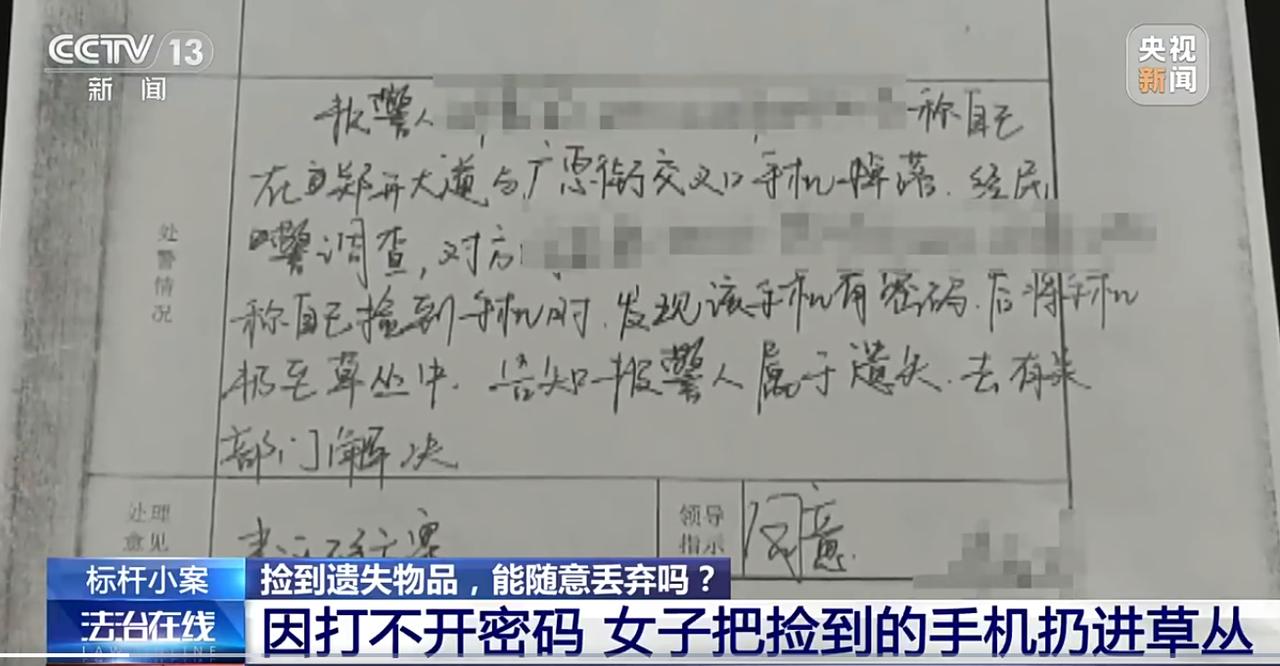 CCTV 13
新闻
央视
新闻
报警人 称自己
在郑开大道与广惠街交叉口手机掉落.经民
警调查,对方
称自己捡到手机时.发现该手机有密码.后将手机
扔至草丛中.告知报警人属于遗失.去有关
部门解决
处警情况
处理
意见
领导
指示
同意.
标杆小案
捡到遗失物品，能随意丢弃吗？
法治在线
LAW ONLINE
因打不开密码 女子把捡到的手机扔进草丛